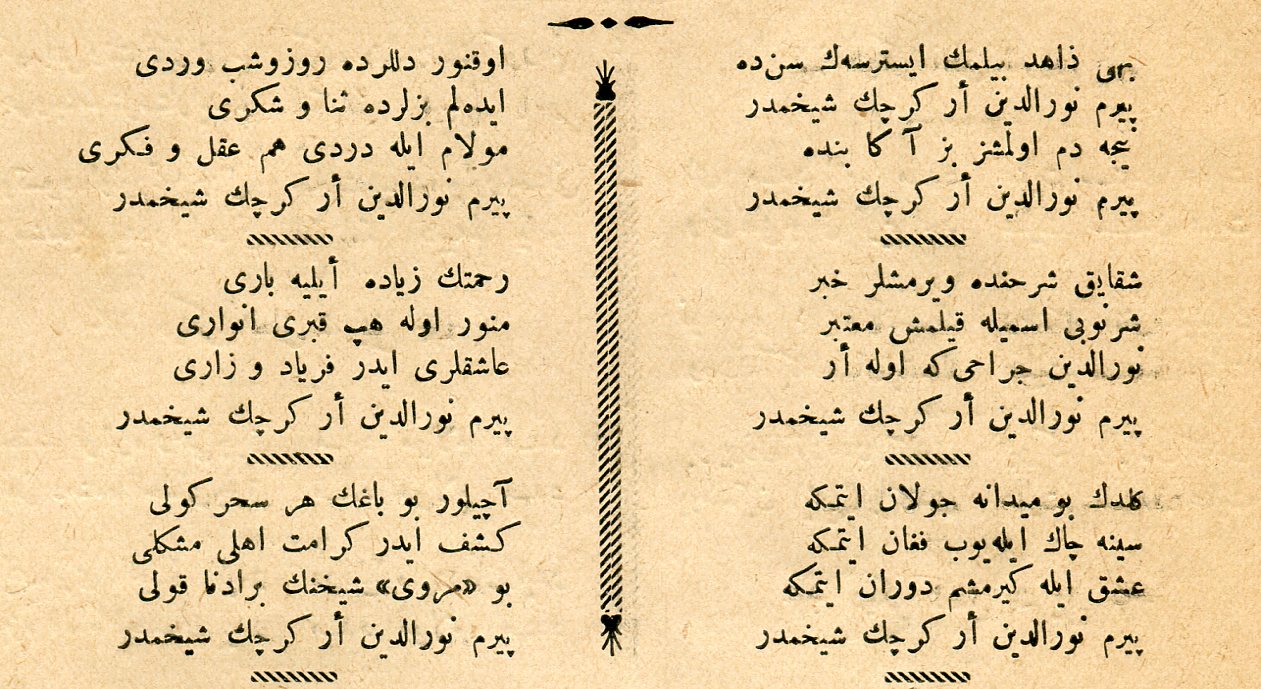 بری زاهد بیلمك ایسترسه‌ك سن‌ده
پیرم نورالدین أر كرچك شیخمدر
نیجه دم اولمشز بز آ كا بنده
پیرم نورالدین أر كرچك شیخمدر
شقایق شرحنده ویرمشلر خبر
شرنوبی اسمیله قیلمش معتبر
نورالدین جراحی‌كه اوله أر
پیرم نورالدین أر كرچك شیخمدر
كلدك بو میدانه جولان ایتمكه
سینه چاك ایله‌یوب فغان ایتمكه
عشق ایله كیرمشم دوران ایتمكه
پیرم نورالدین أر كرچك شیخمدر
اوقنور دللرده روزوشب وردی
ایده‌لم بزلرده ثنا و شكری
مولام ایله دردی هم عقل و فكری
پیرم نورالدین أر كرچك شیخمدر
رحمتك زیاده أیلیه باری
منور اوله هپ قبری انواری
عاشقلری ایدر فریاد و زاری
پیرم نورالدین أر كرچك شیخمدر
آچیلور بو باغك هر سحر كولی
كشف ایدر كرامت اهلی مشكلی
بو «مروی» شیخنك برادنا قولی
پیرم نورالدین أر كرچك شیخمدر